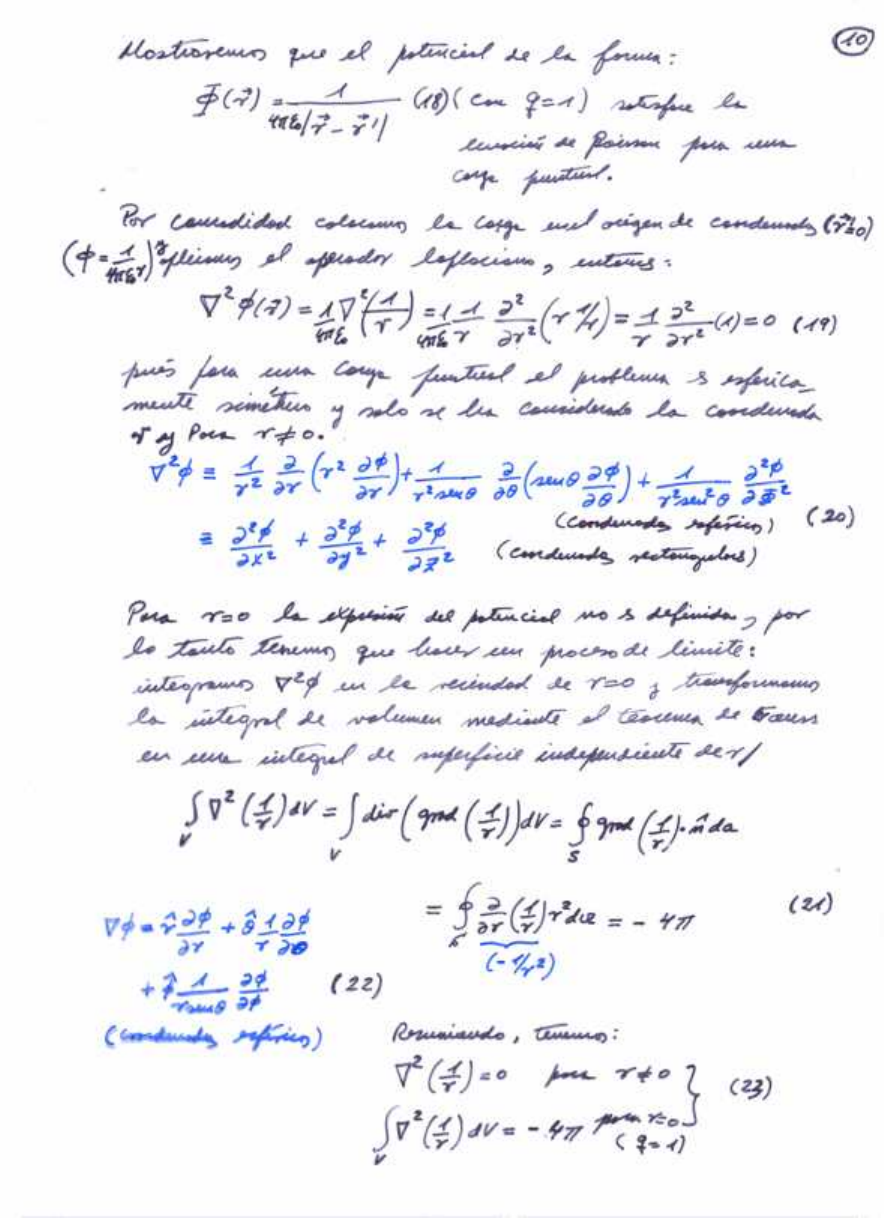 10
Mostraremos que el potencial de la forma:
Φ(r⃗) = 1/(4πε₀|r⃗ - r⃗'|) (18) (con q=1) satisface la
ecuación de Poisson para una
carga puntual.
Por comodidad colocamos la carga en el origen de coordenadas (r⃗'=0)
(ϕ = 1/(4πε₀r)) y aplicamos el operador laplaciano, entonces:
∇²ϕ(r⃗) = 1/(4πε₀) ∇²(1/r) = 1/(4πε₀) 1/r ∂²/∂r² (r 1/r) = 1/r ∂²/∂r² (1) = 0 (19)
pués para una carga puntual el problema es esférica_
mente simétrico y solo se ha considerado la coordenada
r y Para r ≠ 0.
∇²ϕ ≡ 1/r² ∂/∂r (r² ∂ϕ/∂r) + 1/(r² senθ) ∂/∂θ (senθ ∂ϕ/∂θ) + 1/(r² sen²θ) ∂²ϕ/∂Φ²
(coordenadas esféricas) (20)
≡ ∂²ϕ/∂x² + ∂²ϕ/∂y² + ∂²ϕ/∂z² (coordenadas rectangulares)
Para r=0 la expresión del potencial no es definida, por
lo tanto tenemos que hacer un proceso de límite:
integramos ∇²ϕ en la vecindad de r=0 y transformamos
la integral de volumen mediante el teorema de Gauss
en una integral de superficie independiente de r/
∫_V ∇²(1/r) dV = ∫_V div (grad (1/r)) dV = ∮_S grad (1/r)·n̂ da
= ∮_S ∂/∂r (1/r) r² dΩ = - 4π (21)
(-1/r²)
∇ϕ = r̂ ∂ϕ/∂r + θ̂ 1/r ∂ϕ/∂θ
+ ϕ̂ 1/(r senθ) ∂ϕ/∂ϕ (22)
(coordenadas esféricas)
Resumiendo, tenemos:
∇²(1/r) = 0 para r ≠ 0
∫_V ∇²(1/r) dV = - 4π para r=0 } (23)
(q=1)